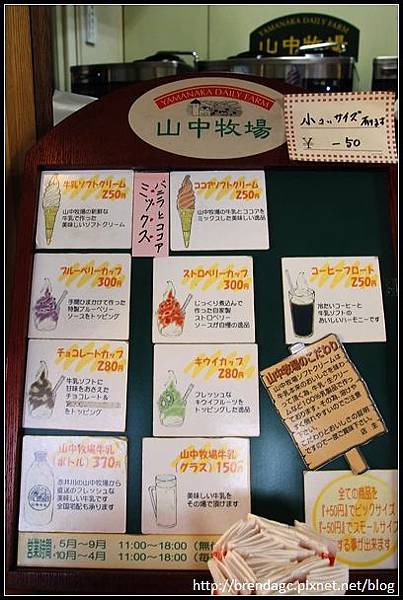 YAMANAKA DAILY FARM
山中牧場
YAMANAKA DAIRY FARM
山中牧場
小さいサイズ有ります
¥ -50
牛乳ソフトクリーム
250円
山中牧場の新鮮な
牛乳で作った
美味しいソフトクリーム
バニラとココア
ミックス
ココアソフトクリーム
250円
山中牧場の牛乳とココアを
ミックスした美味しい逸品
ブルーベリーカップ
300円
手間ひまかけて作った
特製ブルーベリー
ソースをトッピング
ストロベリーカップ
300円
じっくり煮込んで
作った自家製
ストロベリー
ソースが自慢の逸品
コーヒーフロート
250円
冷たいコーヒーと
牛乳ソフトの
おいしいハーモニーです
チョコレートカップ
280円
牛乳ソフトに
甘味をおさえた
チョコレート&
をトッピング
キウイカップ
280円
フレッシュな
キウイフルーツを
トッピングした逸品
山中牧場のこだわり
山中牧場ソフトクリームは
店主
山中牧場牛乳
(ボトル) 370円
赤井川の山中牧場から
直送のフレッシュな
美味しい牛乳です
全国宅配も承ります
山中牧場牛乳
(グラス) 150円
美味しい牛乳を
その場で頂けます
全ての商品を
『+50円』でビックサイズ
『-50円』でスモールサイズ
する事が出来ます
営業時間
5月〜9月 11:00〜18:00
10月〜4月 11:00〜18:00
http://brendagc.pixnet.net/blog